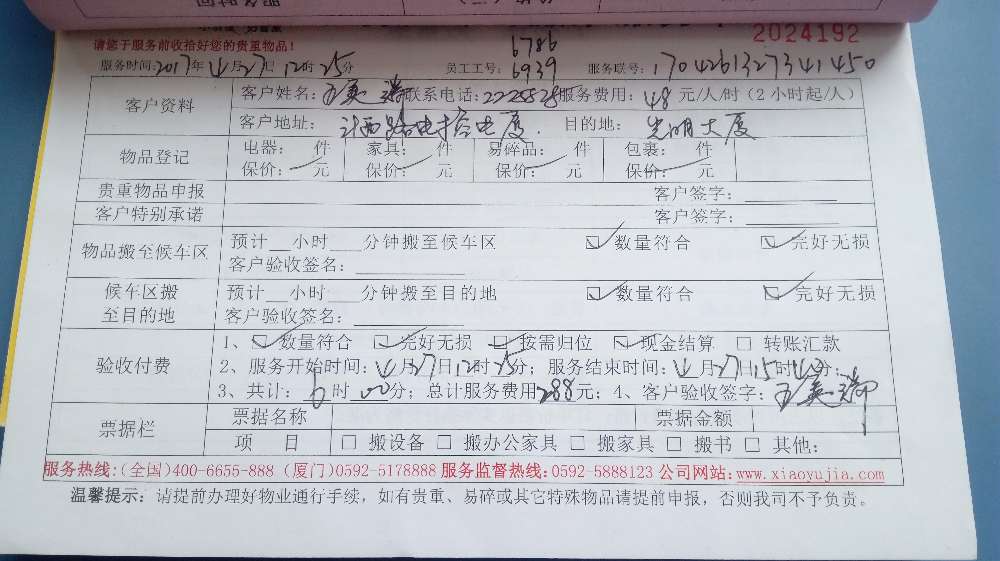 2024192
请您于服务前收拾好您的贵重物品!
6786
服务时间:2017年4月27日12时25分 员工工号: 6939 服务联号:1704261327341450
客户资料 客户姓名: 联系电话:2225828服务费用:48元/人/时(2小时起/人)
客户地址: 目的地: 光明大厦
物品登记 电器: 件 家具: 件 易碎品: 件 包裹: 件
保价: 元 保价: 元 保价: 元 保价: 元
贵重物品申报 客户签字:
客户特别承诺 客户签字:
物品搬至候车区 预计__小时___分钟搬至候车区 ☑数量符合 ☑完好无损
客户验收签名:
候车区搬至目的地 预计__小时___分钟搬至目的地 ☑数量符合 ☑完好无损
客户验收签名:
验收付费 1、☑数量符合 ☑完好无损 ☑按需归位 ☑现金结算 □转账汇款
2、服务开始时间:4月27日12时25分;服务结束时间:4月27日15时 分;
3、共计:6时00分;总计服务费用288元;4、客户验收签字:
票据栏 票据名称 票据金额
项 目 □搬设备 □搬办公家具 □搬家具 □搬书 □其他:
服务热线:(全国)400-6655-888 (厦门)0592-5178888 服务监督热线:0592-5888123 公司网站:www.xiaoyujia.com
温馨提示:请提前办理好物业通行手续,如有贵重、易碎或其它特殊物品请提前申报,否则我司不予负责。